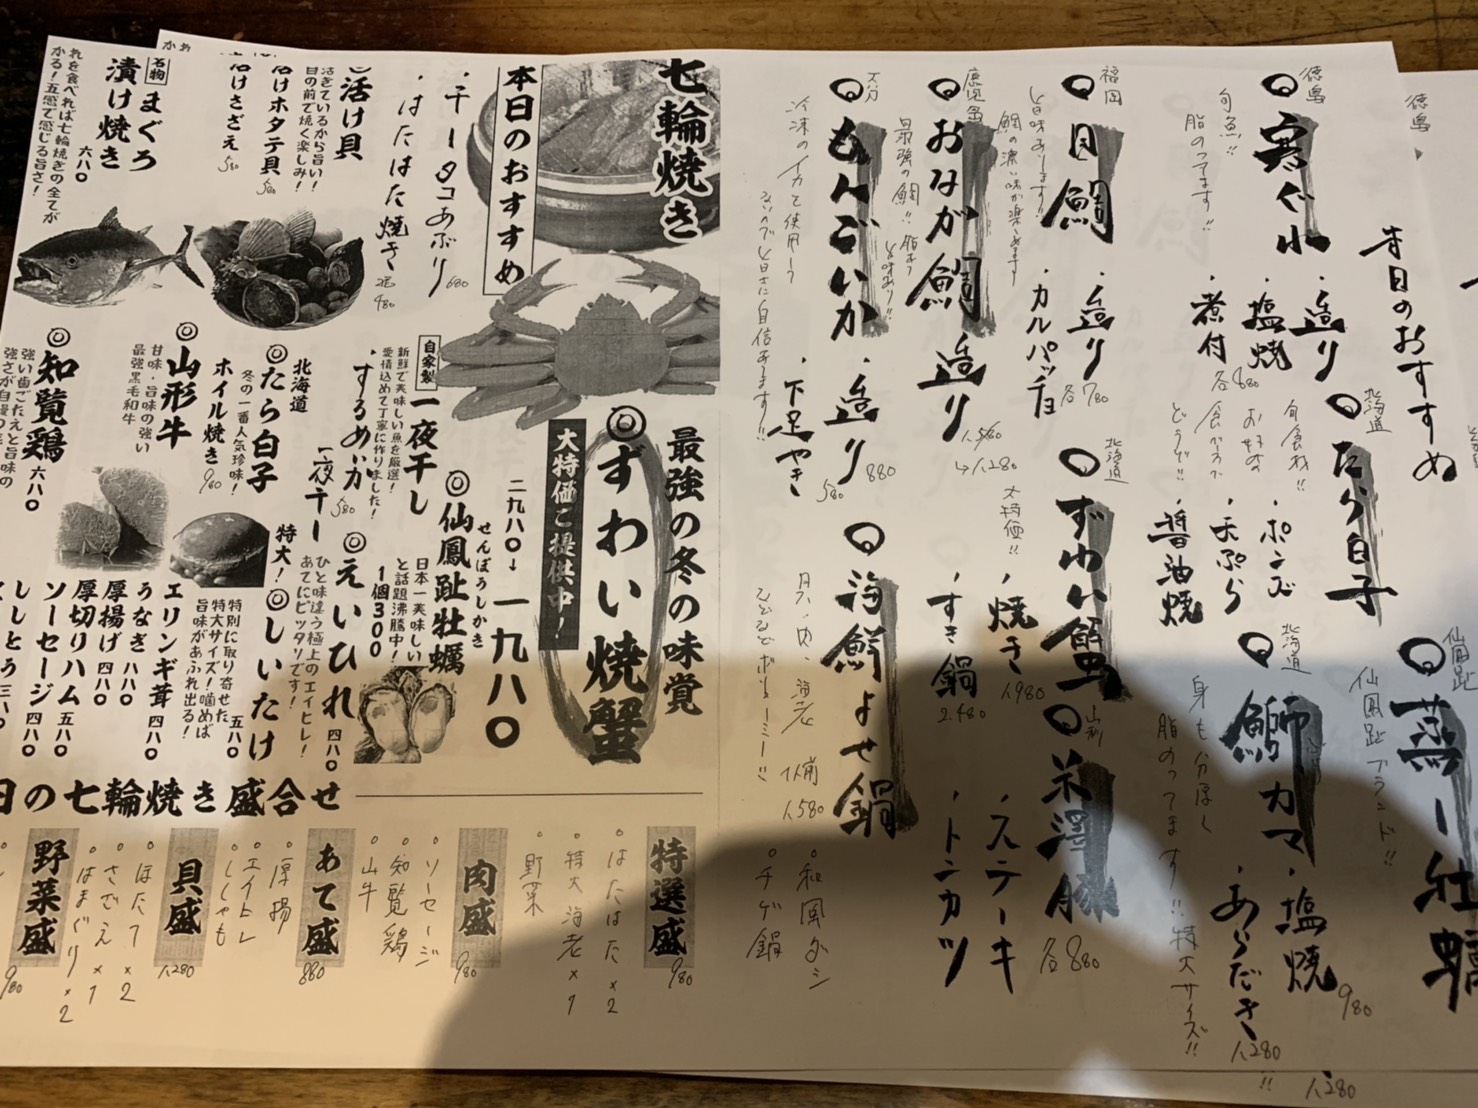 徳島
本日のおすすめ
仙鳳趾
仙鳳趾ブランド!!
蒸し牡蠣
1,280
徳島
寒ぐれ
旬魚!!
脂のってます!!
・造り
・塩焼
・煮付
各680
北海道
たら白子
旬食材!!
お好きな
食べ方で
どうぞ!!
・ポン酢
・天ぷら
・醤油焼
北海道
鰤カマ
身も分厚く
脂のってます!!特大サイズ!!
・塩焼
980
・あらだき
1,280
福岡
目鯛
・造り
・カルパッチョ
各780
北海道
ずわい蟹
大特価!!
・焼き
1,980
・すき鍋
2,480
山形
米澤豚
・ステーキ
・トンカツ
各880
鹿児島
おなが鯛
最強の鯛!!
造り
1,580
→1,280
大分
もんごいか
・造り
880
・下足やき
580
海鮮よせ鍋
1,580
・和風ダシ
・チゲ鍋
七輪焼き
本日のおすすめ
・干しタコあぶり
680
・はたはた焼き
2尾
480
◎活け貝
活きているから旨い!
目の前で焼く楽しみ!
活けホタテ貝
580
活けさざえ
580
名物
まぐろ
漬け焼き
六八〇
れを食べれば七輪焼きの全てが
かる!五感で感じる旨さ!
最強の冬の味覚
◎ずわい焼蟹
大特価ご提供中!
二九八〇→一九八〇
せんぽうしかき
◎仙鳳趾牡蠣
日本一美味しい
と話題沸騰中!
1個300
自家製
一夜干し
新鮮で美味しい魚を厳選!
愛情込めて丁寧に作り味した!
・するめいか
一夜干し
580
◎えいひれ
四八〇
ひと味違う極上のエイヒレ!
あてにピッタリです!
北海道
◎たら白子
冬の一番人気珍味!
ホイル焼き
980
特大!
◎しいたけ
五八〇
特別に取り寄せた
特大サイズ!噛めば
旨味があふれ出る!
◎山形牛
甘味・旨味の強い
最強黒毛和牛
◎知覧鶏
六八〇
強い歯ごたえと旨味の
強さが自慢の
エリンギ茸 四八〇
うなぎ 八八〇
厚揚げ 四八〇
厚切りハム 五八〇
ソーセージ 四八〇
ししとう 三八〇
日の七輪焼き盛合せ
特選盛
980
・はたはた×2
・特大海老×1
・野菜
肉盛
980
・ソーセージ
・知覧鶏
・山牛
あて盛
880
・厚揚
・エイヒレ
・ししゃも
貝盛
1,280
・ほたて×2
・さざえ×1
・はまぐり×2
野菜盛
980